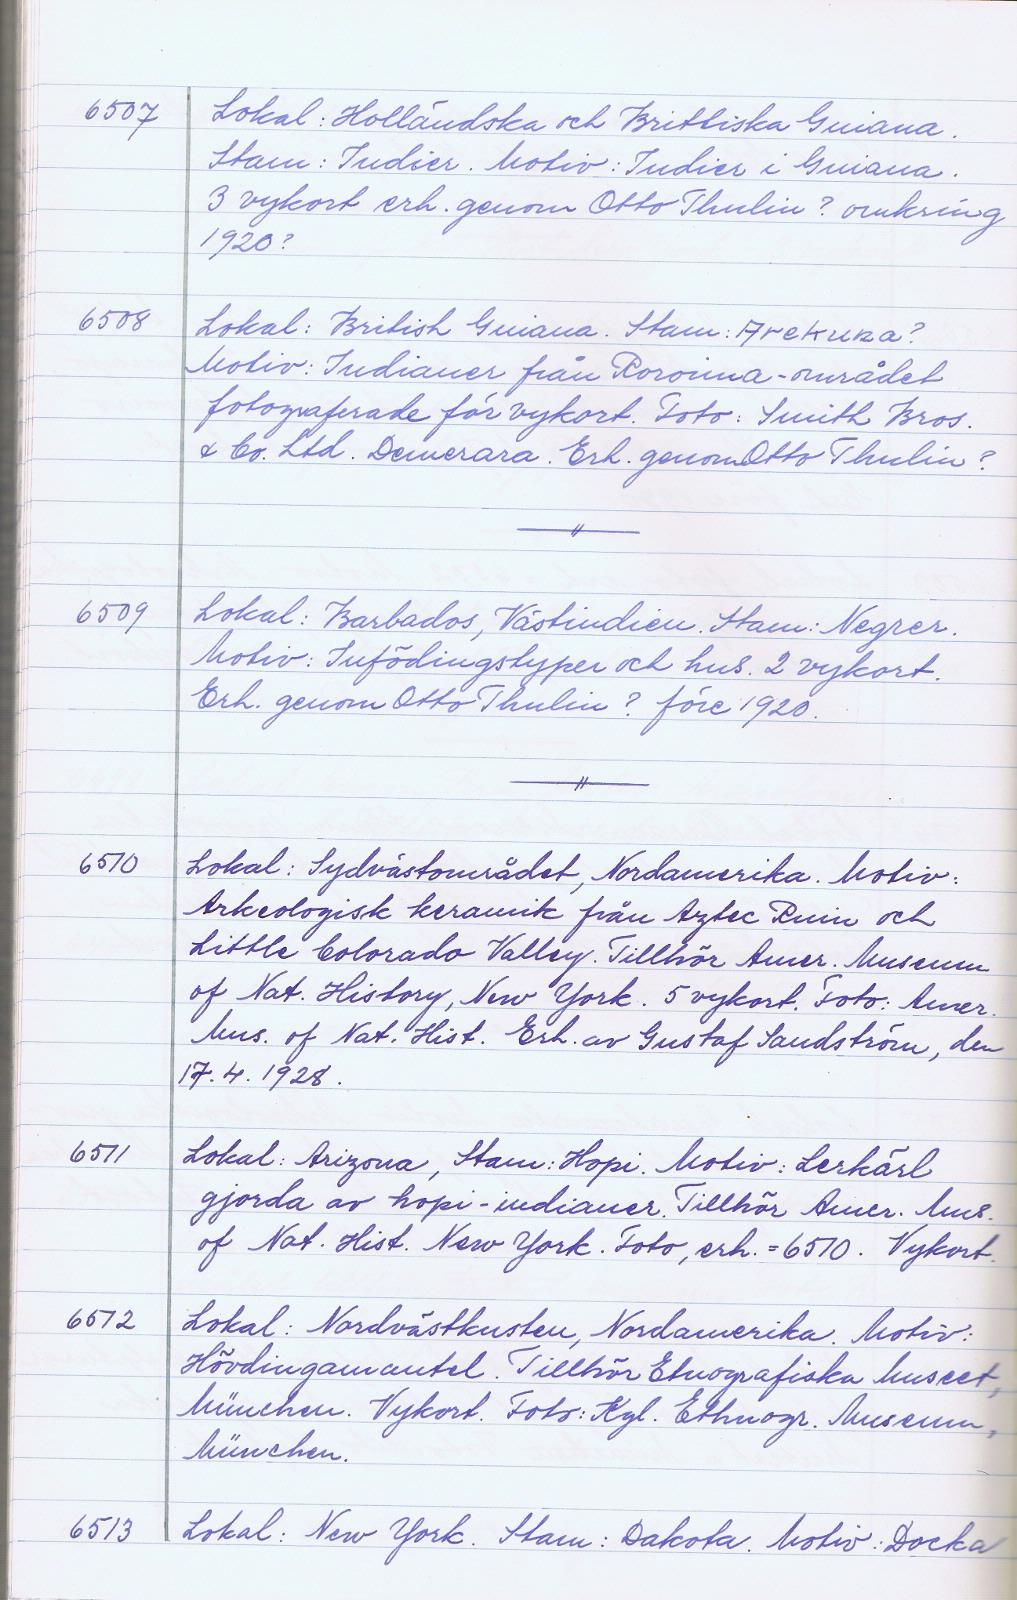 6507 Lokal: Holländska och Brittiska Guiana.
Stam: Indier. Motiv: Indier i Guiana.
3 vykort erh. genom Otto Thulin? omkring
1920?
6508 Lokal: British Guiana. Stam: Arekuna?
Motiv: Indianer från Roroima-området
fotograferade för vykort. Foto: Smith Bros.
& Co. Ltd. Demerara. Erh. genom Otto Thulin?
6509 Lokal: Barbados, Västindien. Stam: Negrer.
Motiv: Infödingstyper och hus. 2 vykort.
Erh. genom Otto Thulin? före 1920.
6510 Lokal: Sydvästområdet, Nordamerika. Motiv:
Arkeologisk keramik från Aztec Ruin och
Little Colorado Valley. Tillhör Amer. Museum
of Nat. History, New York. 5 vykort. Foto: Amer.
Mus. of Nat. Hist. Erh. av Gustaf Sandström, den
17.4.1928.
6511 Lokal: Arizona, Stam: Hopi. Motiv: Lerkärl
gjorda av hopi-indianer. Tillhör Amer. Mus.
of Nat. Hist. New York. Foto, erh. = 6510. Vykort.
6512 Lokal: Nordvästkusten, Nordamerika. Motiv:
Hövdingamantel. Tillhör Etnografiska Museet,
München. Vykort. Foto: Kgl. Ethnogr. Museum,
München.
6513 Lokal: New York. Stam: Dakota. Motiv: Docka